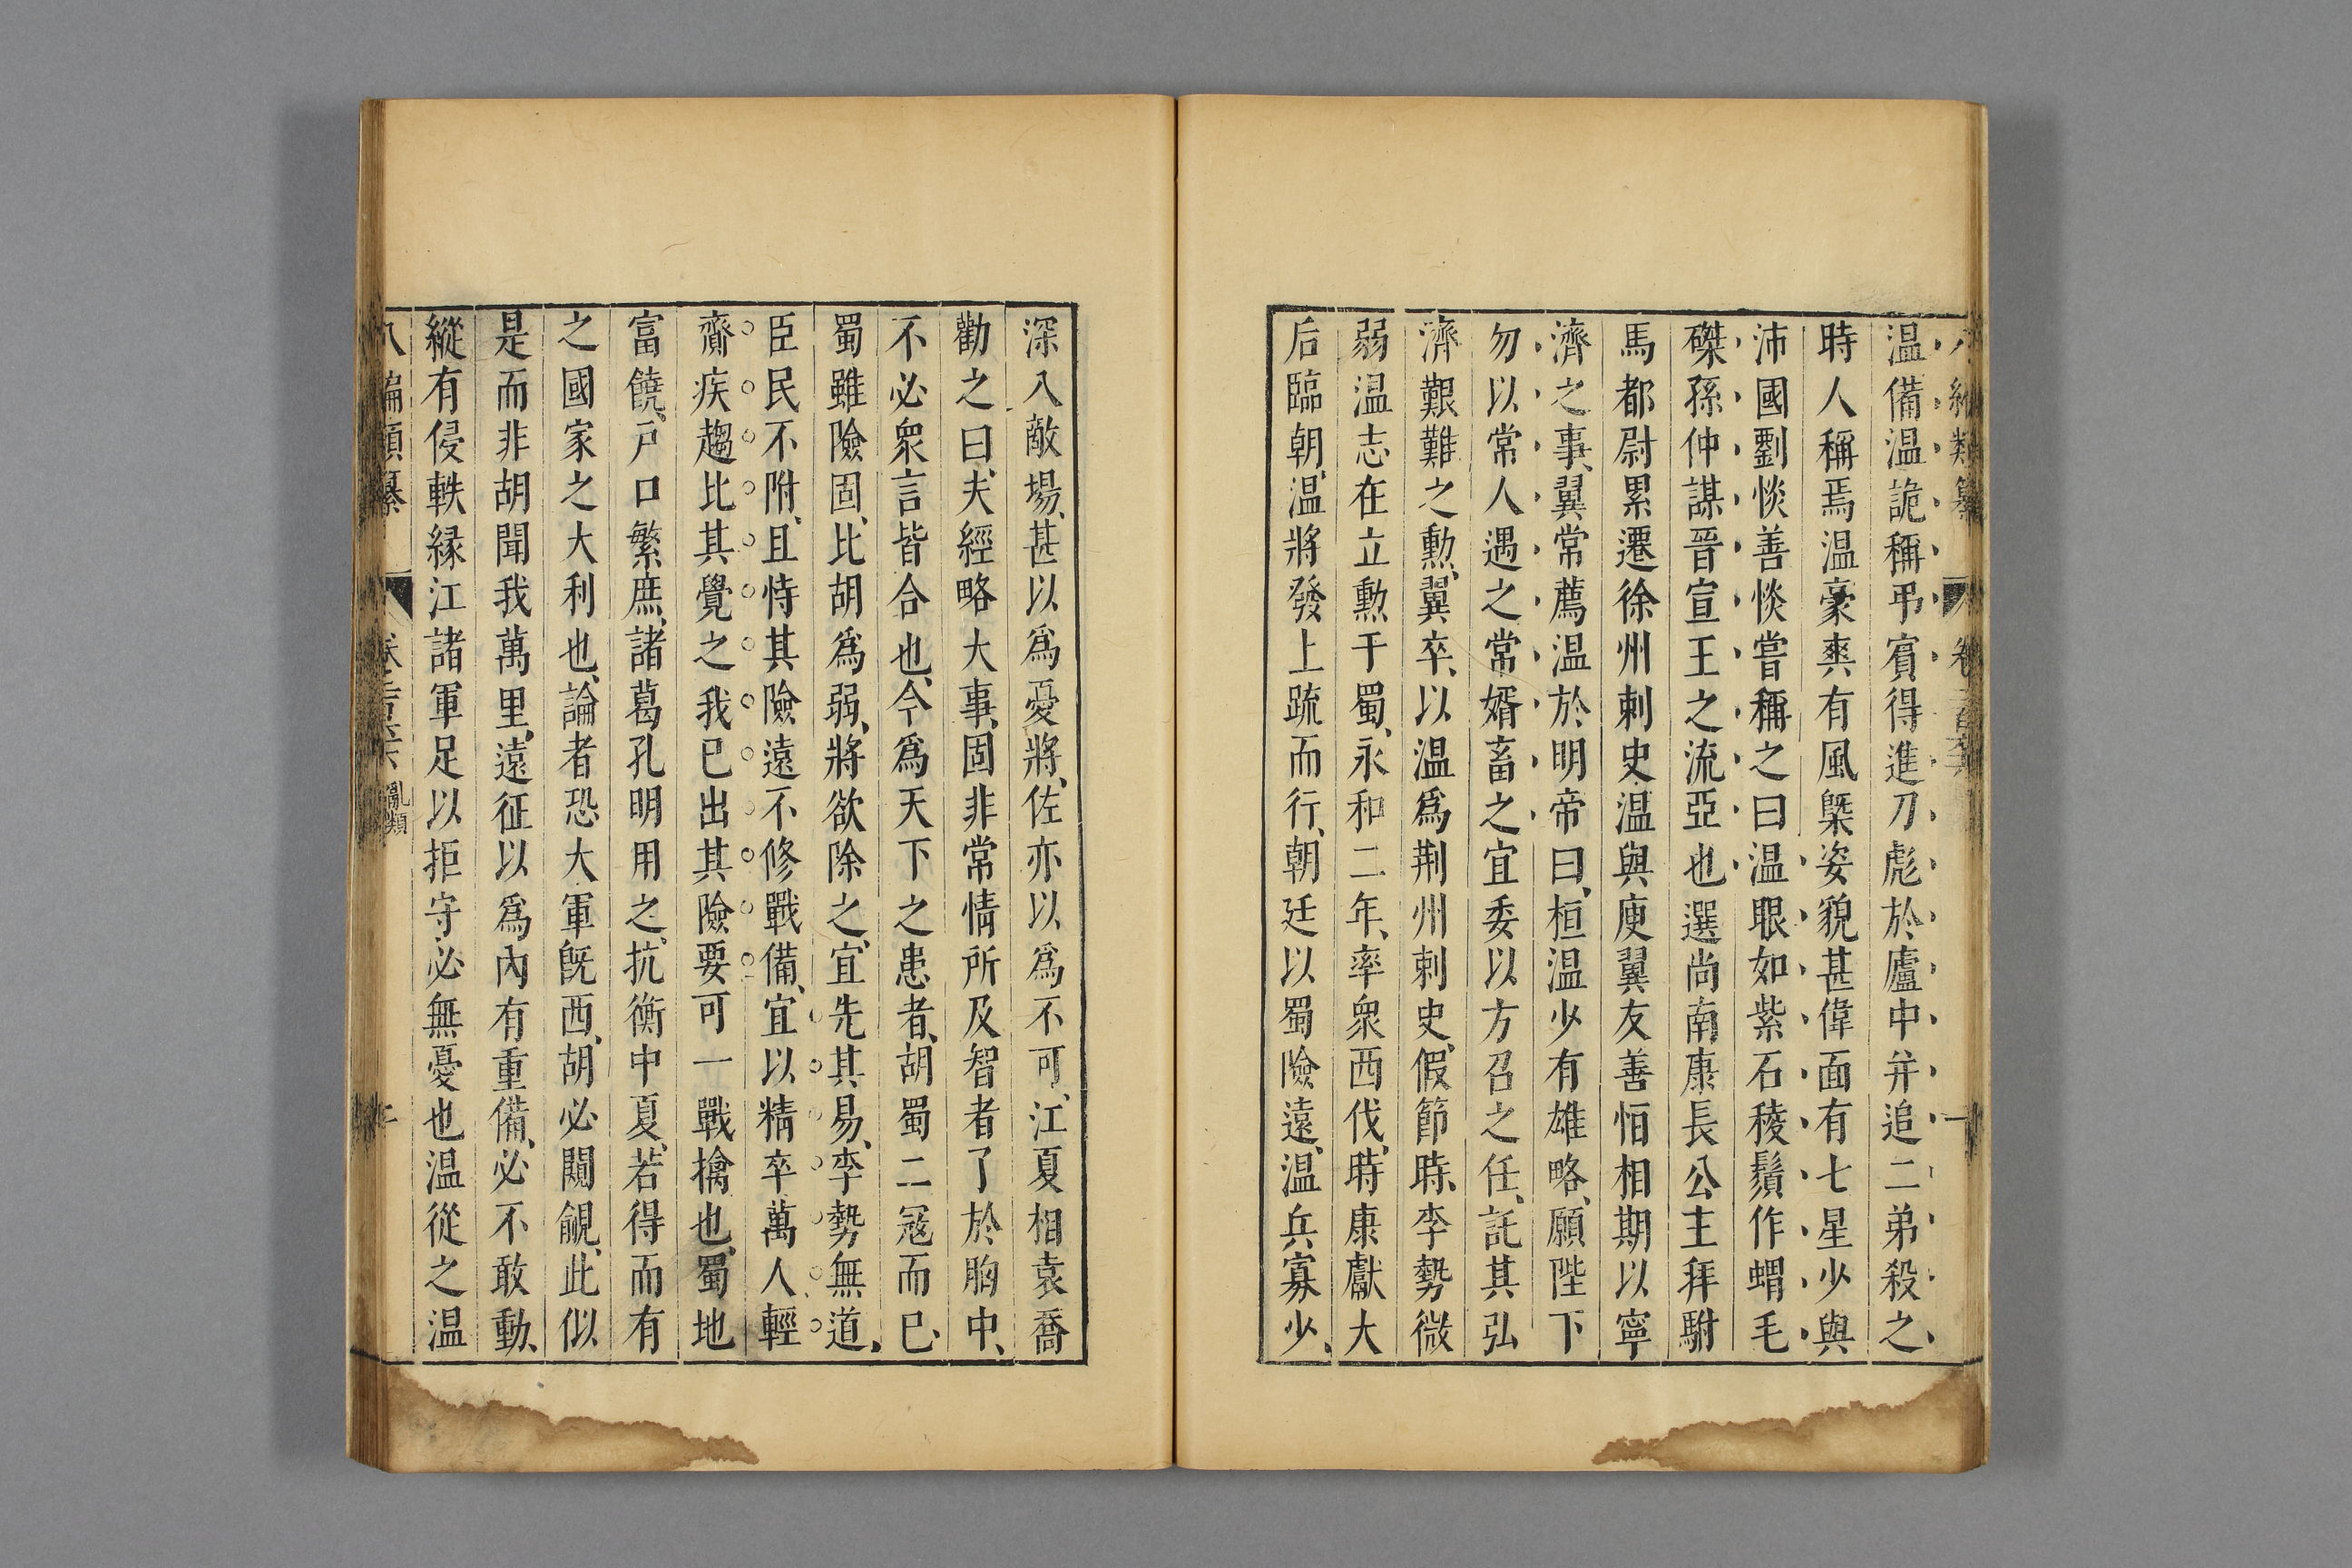 温備温詭稱弔賔得進刀彪於廬中并追二弟殺之
時人稱焉温豪爽有風槩姿貌甚偉面有七星少與
沛國劉惔善惔嘗稱之曰温眼如紫石稜鬚作蝟毛
磔孫仲謀晉宣王之流亞也選尚南康長公主拜駙
馬都尉累遷徐州刺史温與庾翼友善怕相期以寧
濟之事翼常薦温於明帝曰桓温少有雄略願陛下
勿以常人遇之常婿畜之宜委以方召之任託其弘
濟艱難之勲翼卒以温爲荆州刺史假節時李勢微
弱温志在立勲于蜀永和二年率衆西伐時康獻大
后臨朝温將發上疏而行朝廷以蜀險遠温兵寡少
深入敵場甚以爲憂將佐亦以爲不可江夏相袁喬
勸之曰夫經略大事固非常情所及智者了於胸中
不必衆言皆合也今爲天下之患者胡蜀二冦而已
蜀雖險固比胡爲弱將欲除之宜先其易李勢無道
臣民不附且恃其險遠不修戰備宜以精卒萬人輕
齎疾趨比其覺之我已出其險要可一戰擒也蜀地
富饒戸口繁庶諸葛孔明用之抗衡中夏若得而有
之國家之大利也論者恐大軍旣西胡必闚覦此似
是而非胡聞我萬里遠征以爲內有重備必不敢動
縱有侵軼緣江諸軍足以拒守必無憂也温從之温